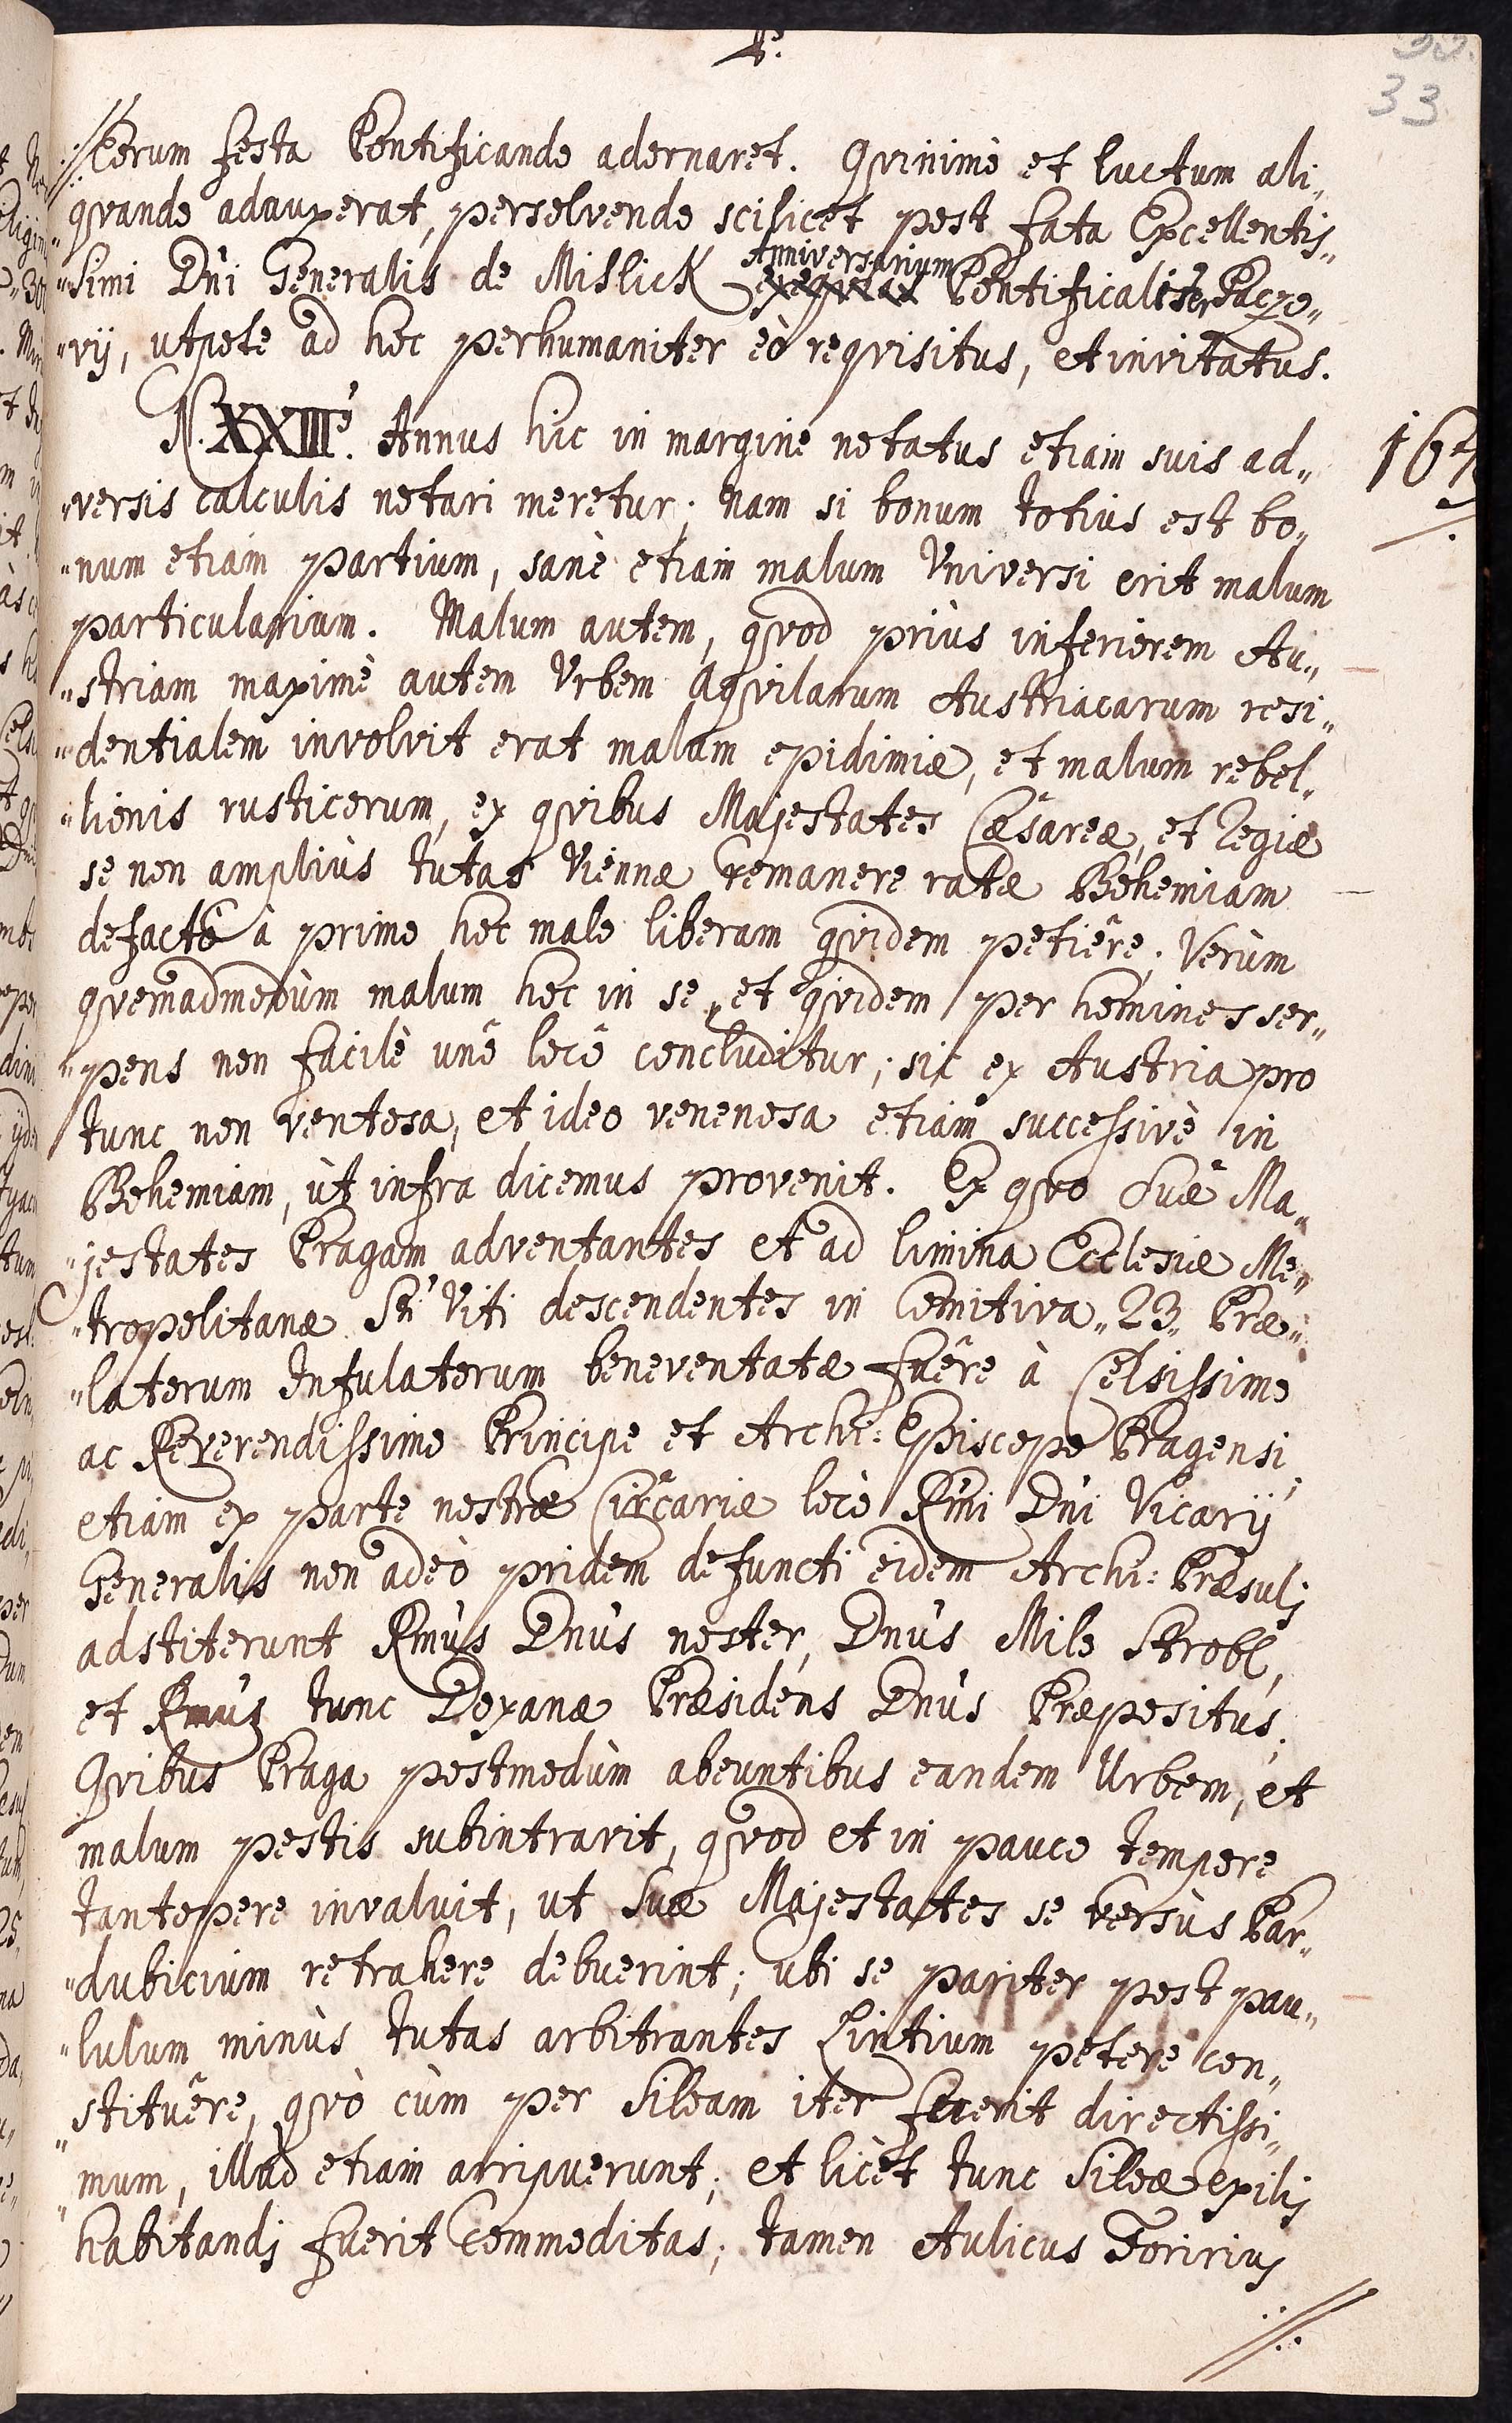 33
//: Eorum festa Pontificando adornaret. Qvinimò et luctum ali„
„qvando adauxerat, persolvendo scilicet post fata Excellentis„
„simi Dni Generalis de Mislick Anniversarium Pontificaliter Paczo„
„vij, utpote ad hoc perhumaniter eò reqvisitus, et invitatus.
N. XXIIIò. Annus hic in margine notatus etiam suis ad„
167
„versis calculis notari meretur; nam si bonum totius est bo„
„num etiam partium, sanè etiam malum Vniversi erit malum
particularium. Malum autem, qvod priùs inferiorem Au„
„striam maximè autem Vrbem Aqvilarum Austriacarum resi„
„dentialem involvit erat malum epidimiæ, et malum rebel„
„lionis rusticorum, ex qvibus Majestates Cæsareæ, et Regiæ
se non ampliùs tutas Viennæ remanere ratæ Bohemiam
defactò à primo hoc malo liberam qvidem petiêre; Verùm
qvemadmodùm malum hoc in se, et qvidem per homines ser„
„pens non facilè unô locô concluditur; sic ex Austria pro
tunc non ventosa, et ideo venenosa etiam successivè in
Bohemiam, ùt infra dicemus provenit. Ex qvo Suæ Ma„
„jestates Pragam adventantes et ad limina Ecclesiæ Me„
„tropolitanæ Sti Viti descendentes in Comitiva „23„ Præ„
„latorum Infulatorum beneventatæ fuêre à Celsissimo
ac Reverendissimo Principe et Archi: Episcopo Pragensi;
etiam ex parte nostræ Circariæ locò Rmi Dni Vicarij
Generalis non adeò pridem defuncti eidem Archi: Præsuli
adstiterunt Rmus Dnus noster, Dnus Milo Strobl,
et Rmus tunc Doxanæ Præsidens Dnus Præpositus.
Qvibus Praga postmodùm abeuntibus eandem Urbem, et
malum pestis subintravit, qvod et in pauco tempore
tantopere invaluit, ut Suæ Majestates se versùs Par„
„dubicium retrahere debuerint; ubi se pariter post pau„
„lulum minùs tutas arbitrantes Lintium petere con„
„stituêre, qvò cùm per Siloam iter fuerit directissi„
„mum, illud etiam arripuerunt; et licèt tunc Siloæ exilis
habitandi fuerit Commoditas; tamen Aulicus Foririus